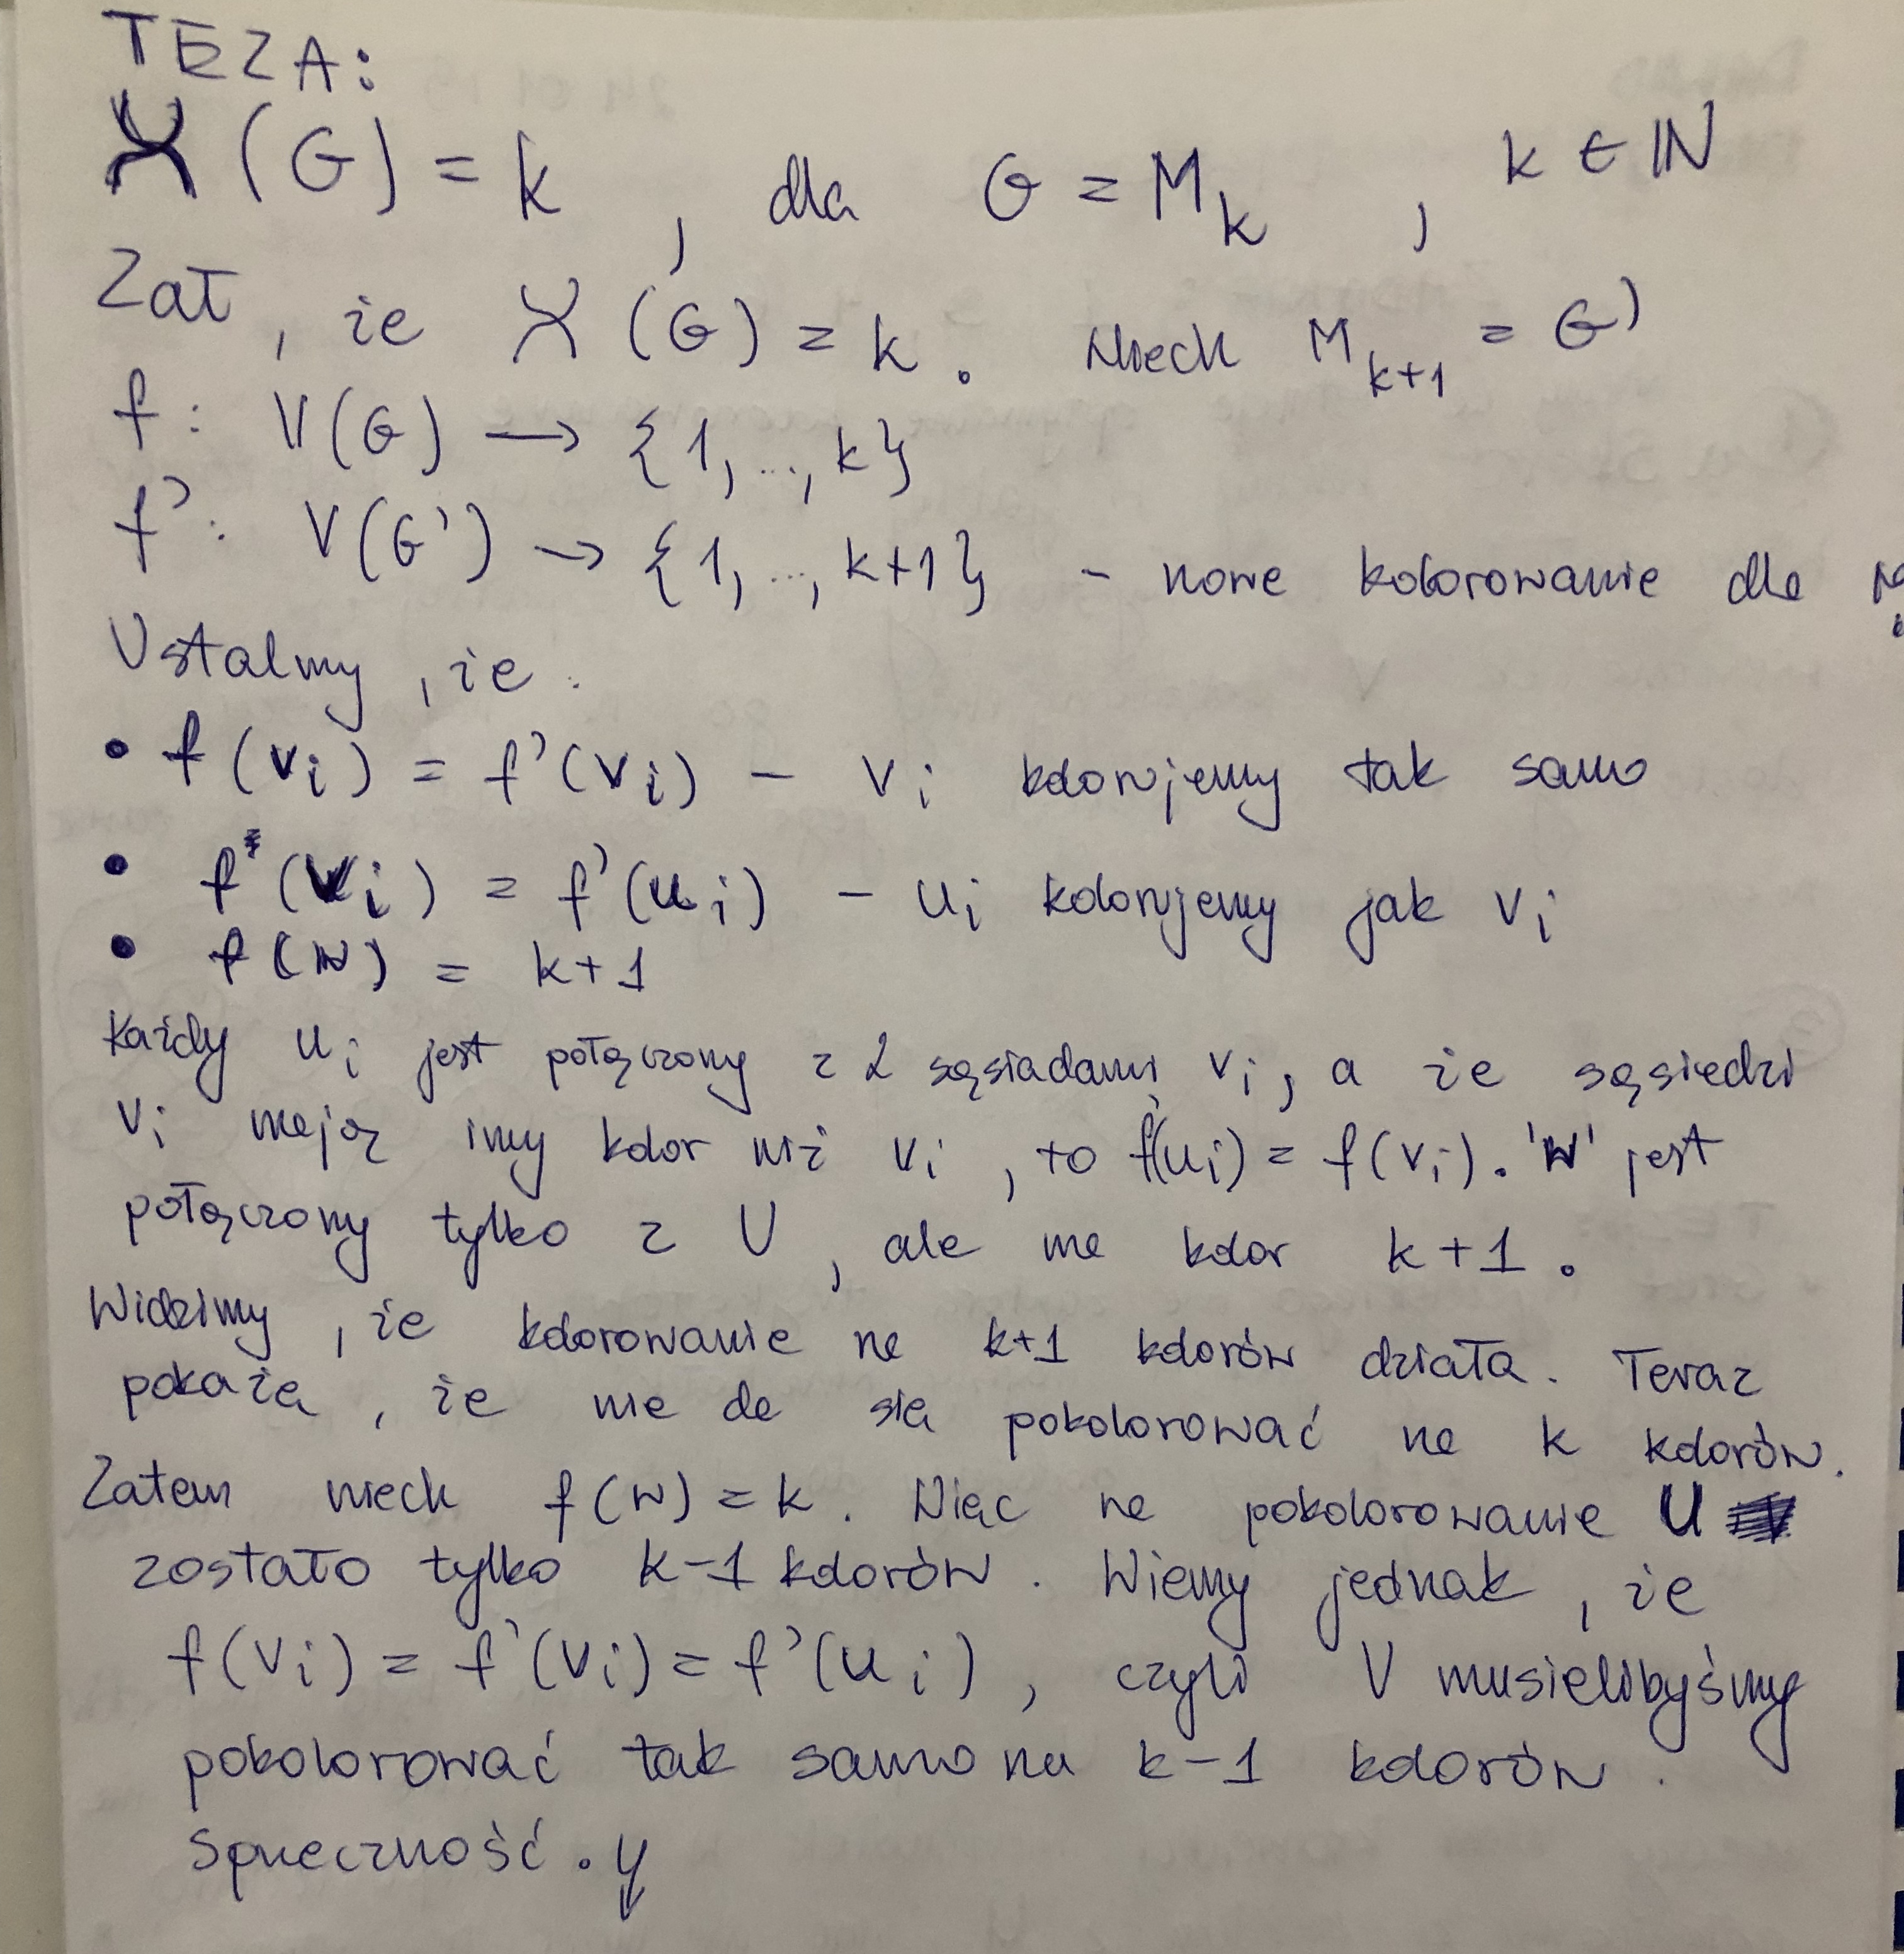 TEZA:
χ(G) = k , dla G = M_k , k ∈ ℕ
Zał , że χ(G) = k . Niech M_{k+1} = G'
f : V(G) → {1, ..., k}
f' : V(G') → {1, ..., k+1} - nowe kolorowanie dla
Ustalmy , że :
• f(v_i) = f'(v_i) - v_i kolorujemy tak samo
• f(v_i) = f'(u_i) - u_i kolorujemy jak v_i
• f(w) = k+1
Każdy u_i jest połączony z sąsiadami v_i, a że sąsiedzi
v_i mają inny kolor niż v_i , to f'(u_i) = f(v_i). 'w' jest
połączony tylko z U , ale ma kolor k+1 .
Widzimy , że kolorowanie na k+1 kolorów działa. Teraz
pokażę , że nie da się pokolorować na k kolorów.
Zatem niech f(w) = k . Więc na pokolorowanie U
zostało tylko k-1 kolorów . Wiemy jednak , że
f(v_i) = f'(v_i) = f'(u_i) , czyli V musielibyśmy
pokolorować tak samo na k-1 kolorów .
Sprzeczność .